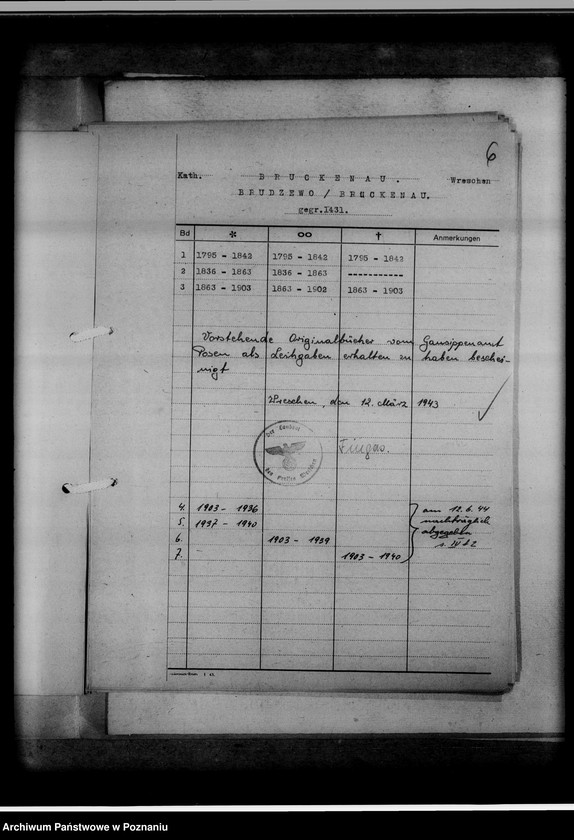 6
Kath. BRUCKENAU. Wreschen
BRUDZEWO / BRÜCKENAU.
gegr.1431.
Bd * ∞ † Anmerkungen
1 1795 - 1842 1795 - 1842 1795 - 1842
2 1836 - 1863 1836 - 1863 -----------
3 1863 - 1903 1863 - 1902 1863 - 1903
Vorstehende Originalbücher vom Gausippenamt
Posen als Leihgaben erhalten zu haben beschei-
nigt
Wreschen, den 12. März 1943
Der Landrat
des Kreises Wreschen
Fingas.
4. 1903 - 1936 am 12.6.44
5. 1937 - 1940 nachträglich
6. 1903 - 1939 abgegeben
7. 1903 - 1940
Archiwum Państwowe w Poznaniu